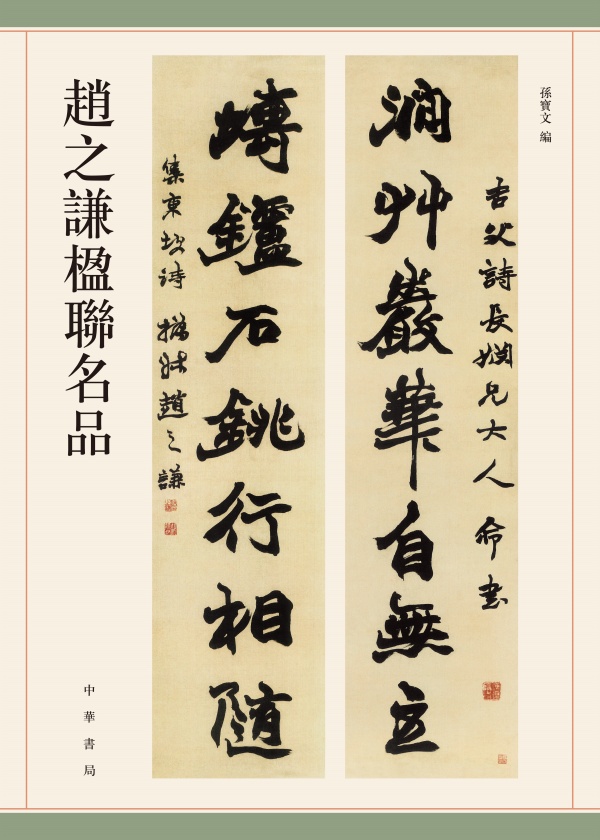 孫寶文 編
父詩長婣兄大人 命書
澗艸巖華自無主
塼鑪石銚行相隨
集東坡詩 撝叔趙之謙
趙之謙楹聯名品
中華書局